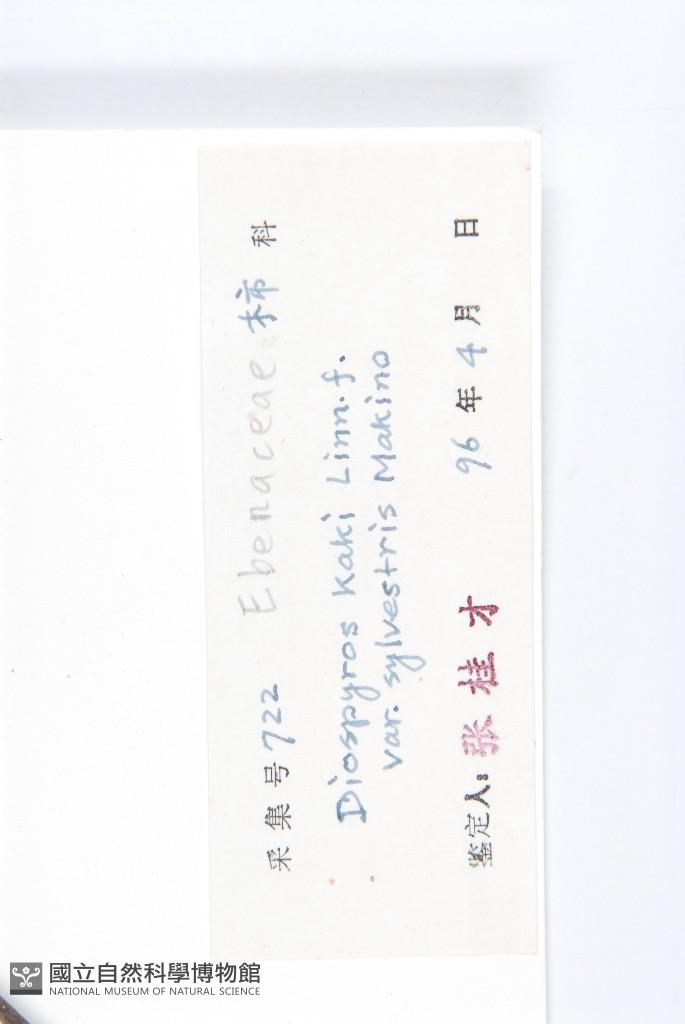 采集号 722 Ebenaceae 柿 科
Diospyros Kaki Linn.f.
var. sylvestris Makino
鉴定人: 张桂才 96 年 4 月 日
國立自然科學博物館
NATIONAL MUSEUM OF NATURAL SCIENCE